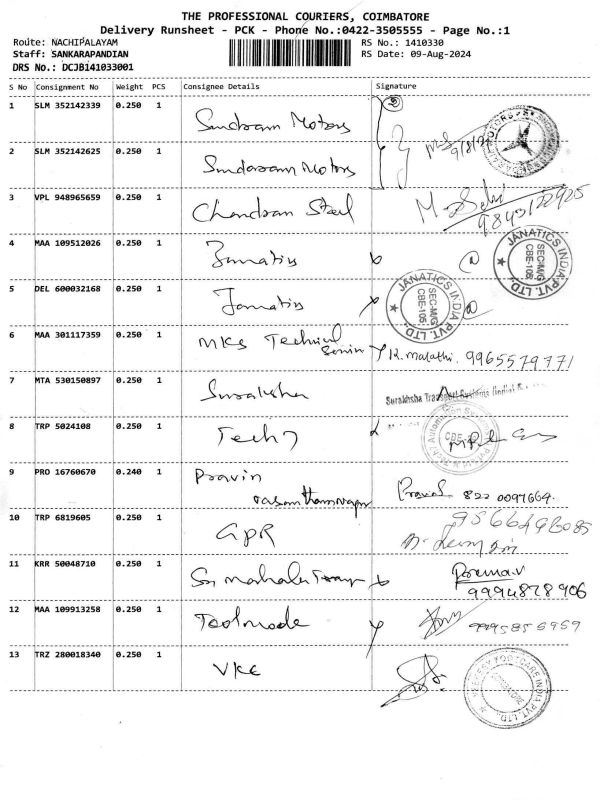 THE PROFESSIONAL COURIERS, COIMBATORE
Delivery Runsheet - PCK - Phone No.:0422-3505555 - Page No.:1
Route: NACHIPALAYAM RS No.: 1410330
Staff: SANKARAPANDIAN RS Date: 09-Aug-2024
DRS No.: DCJBi41033001
S No Consignment No Weight PCS Consignee Details Signature
1 SLM 352142339 0.250 1 Sundram Motors 2
9/8/24
2 SLM 352142625 0.250 1 Sundaram Motors
3 VPL 948965659 0.250 1 Chandran Steel M. Selvi
9843122925
4 MAA 109512026 0.250 1 Janatics
JANATICS INDIA PVT. LTD.
SEC-M/G
CBE-105
5 DEL 600032168 0.250 1 Janatics
JANATICS INDIA PVT. LTD.
SEC-M/G
CBE-105
6 MAA 301117359 0.250 1 MKS Technical
K. Malathi. 9965579771
7 MTA 530150897 0.250 1 Suraksha
Surakhsha Transport Systems (India)
8 TRP 5024108 0.250 1 Tech 7
CBE
9 PRO 16760670 0.240 1 Pravin
822 0097664.
10 TRP 6819605 0.250 1 GPR
9566493085
11 KRR 50048710 0.250 1 Sri Mahalu
Prema.V
9994878906
12 MAA 109913258 0.250 1 Toolmade
9995856959
13 TRZ 280018340 0.250 1 VKC
FOOTCARE INDIA PVT. LTD.